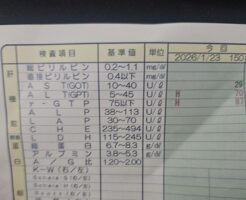 今回
検査項目 基準値 単位 2026/1/23 150
肝
総ビリルビン 0.2～1.1 mg/dl
直接ビリルビン 0.4以下 mg/dl
AST(GOT) 10～40 U/l 29
ALT(GPT) 5～45 U/l H 70
γ-GTP 75以下 U/l H 87
ALP 38～113 U/l
LAP 30～70 U/l
CHE 235～494 U/l
LDH 115～245 U/l
総蛋白 6.7～8.3 g/dl
アルブミン 3.8～5.3 g/dl
A/G比 1.20～2.00
K-W(右/左)
Scheie H(右/左)
Scheie S(右/左)